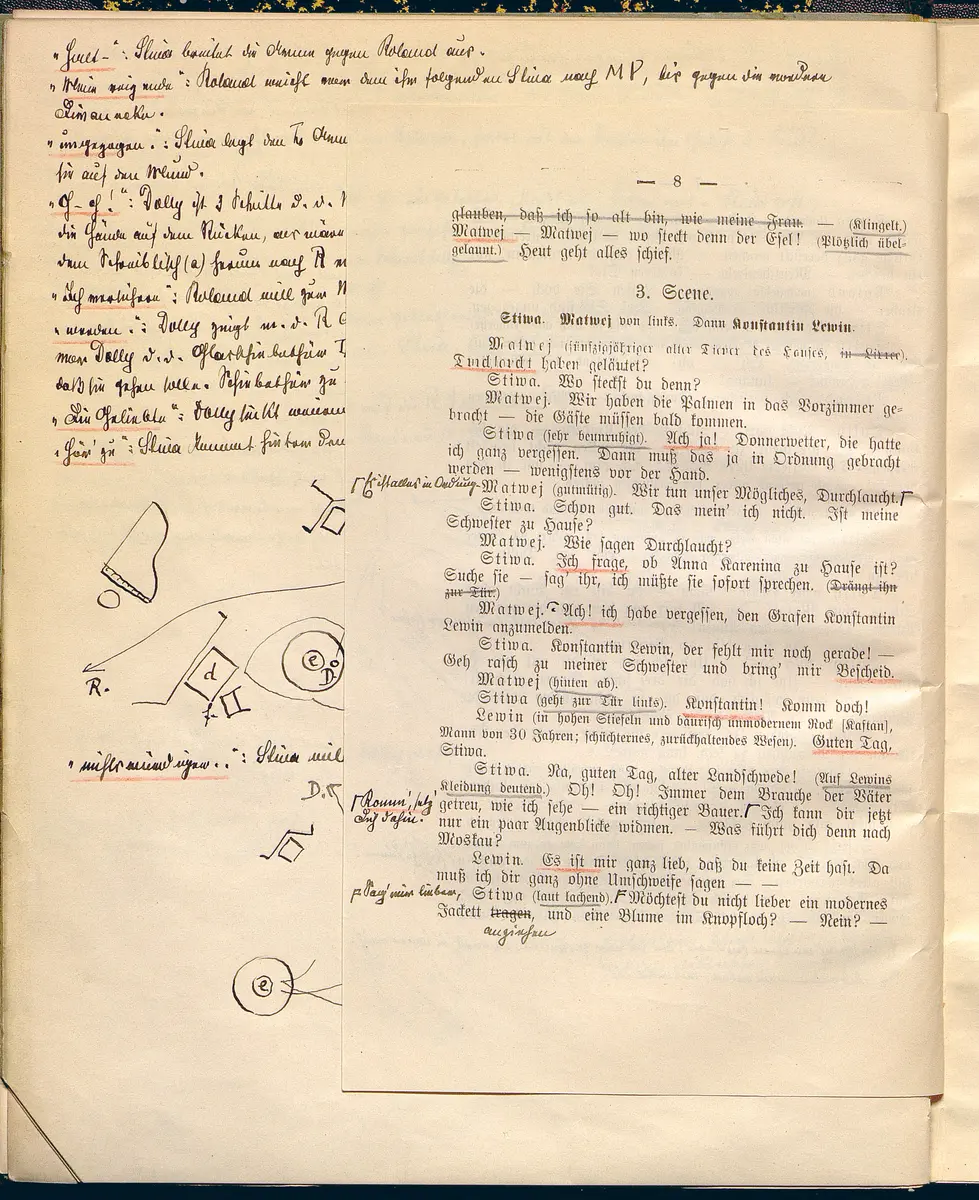 "Halt-": Stiva breitet die Arme gegen Roland aus.
Roland weicht vor dem ihr folgenden Stiva nach MP, bis gegen die vordere
Divanecke.
"ungezogen.": Stiva legt den
sie auf den Mund.
Dolly ist 3 Schritte d. d.
die Hände auf dem Rücken, als wäre
dem Schreibtisch (a) herum nach R
Roland will zum
"werden.": Dolly zeigt n. d. R
Dolly d. d. Glasschiebethür
daß sie gehen solle. Schiebethür zu
"Die Geliebte": Dolly
"Hör' zu": Stiva kommt hinter dem
d
e
D.
f.
R.
D.
e
— 8 —
glauben, daß ich so alt bin, wie meine Frau. — (Klingelt.)
Matwej — Matwej — wo steckt denn der Esel! (Plötzlich übel-
gelaunt.) Heut geht alles schief.
3. Scene.
Stiwa. Matwej von links. Dann Konstantin Lewin.
Matwej (fünfzigjähriger alter Diener des Hauses, in Livree).
Durchlaucht haben geläutet?
Stiwa. Wo steckst du denn?
Matwej. Wir haben die Palmen in das Vorzimmer ge-
bracht — die Gäste müssen bald kommen.
Stiwa (sehr beunruhigt). Ach ja! Donnerwetter, die hatte
ich ganz vergessen. Dann muß das ja in Ordnung gebracht
werden — wenigstens vor der Hand.
Es ist alles in Ordnung.
Matwej (gutmütig). Wir tun unser Mögliches, Durchlaucht.
Stiwa. Schon gut. Das mein' ich nicht. Ist meine
Schwester zu Hause?
Matwej. Wie sagen Durchlaucht?
Stiwa. Ich frage, ob Anna Karenina zu Hause ist?
Suche sie — sag' ihr, ich müßte sie sofort sprechen. (Drängt ihn
zur Tür.)
Matwej. Ach! ich habe vergessen, den Grafen Konstantin
Lewin anzumelden.
Stiwa. Konstantin Lewin, der fehlt mir noch gerade! —
Geh rasch zu meiner Schwester und bring' mir Bescheid.
Matwej (hinten ab).
Stiwa (geht zur Tür links). Konstantin! Komm doch!
Lewin (in hohen Stiefeln und bäurisch unmodernem Rock [Kaftan],
Mann von 30 Jahren; schüchternes, zurückhaltendes Wesen). Guten Tag,
Stiwa.
Stiwa. Na, guten Tag, alter Landschwede! (Auf Lewins
Kleidung deutend.) Oh! Oh! Immer dem Brauche der Väter
getreu, wie ich sehe — ein richtiger Bauer. Ich kann dir jetzt
Komm', setz'
Dich dahin.
nur ein paar Augenblicke widmen. — Was führt dich denn nach
Moskau?
Lewin. Es ist mir ganz lieb, daß du keine Zeit hast. Da
muß ich dir ganz ohne Umschweife sagen — —
Sag' mir lieber,
Stiwa (laut lachend). Möchtest du nicht lieber ein modernes
Jackett tragen, und eine Blume im Knopfloch? — Nein? —
anziehen